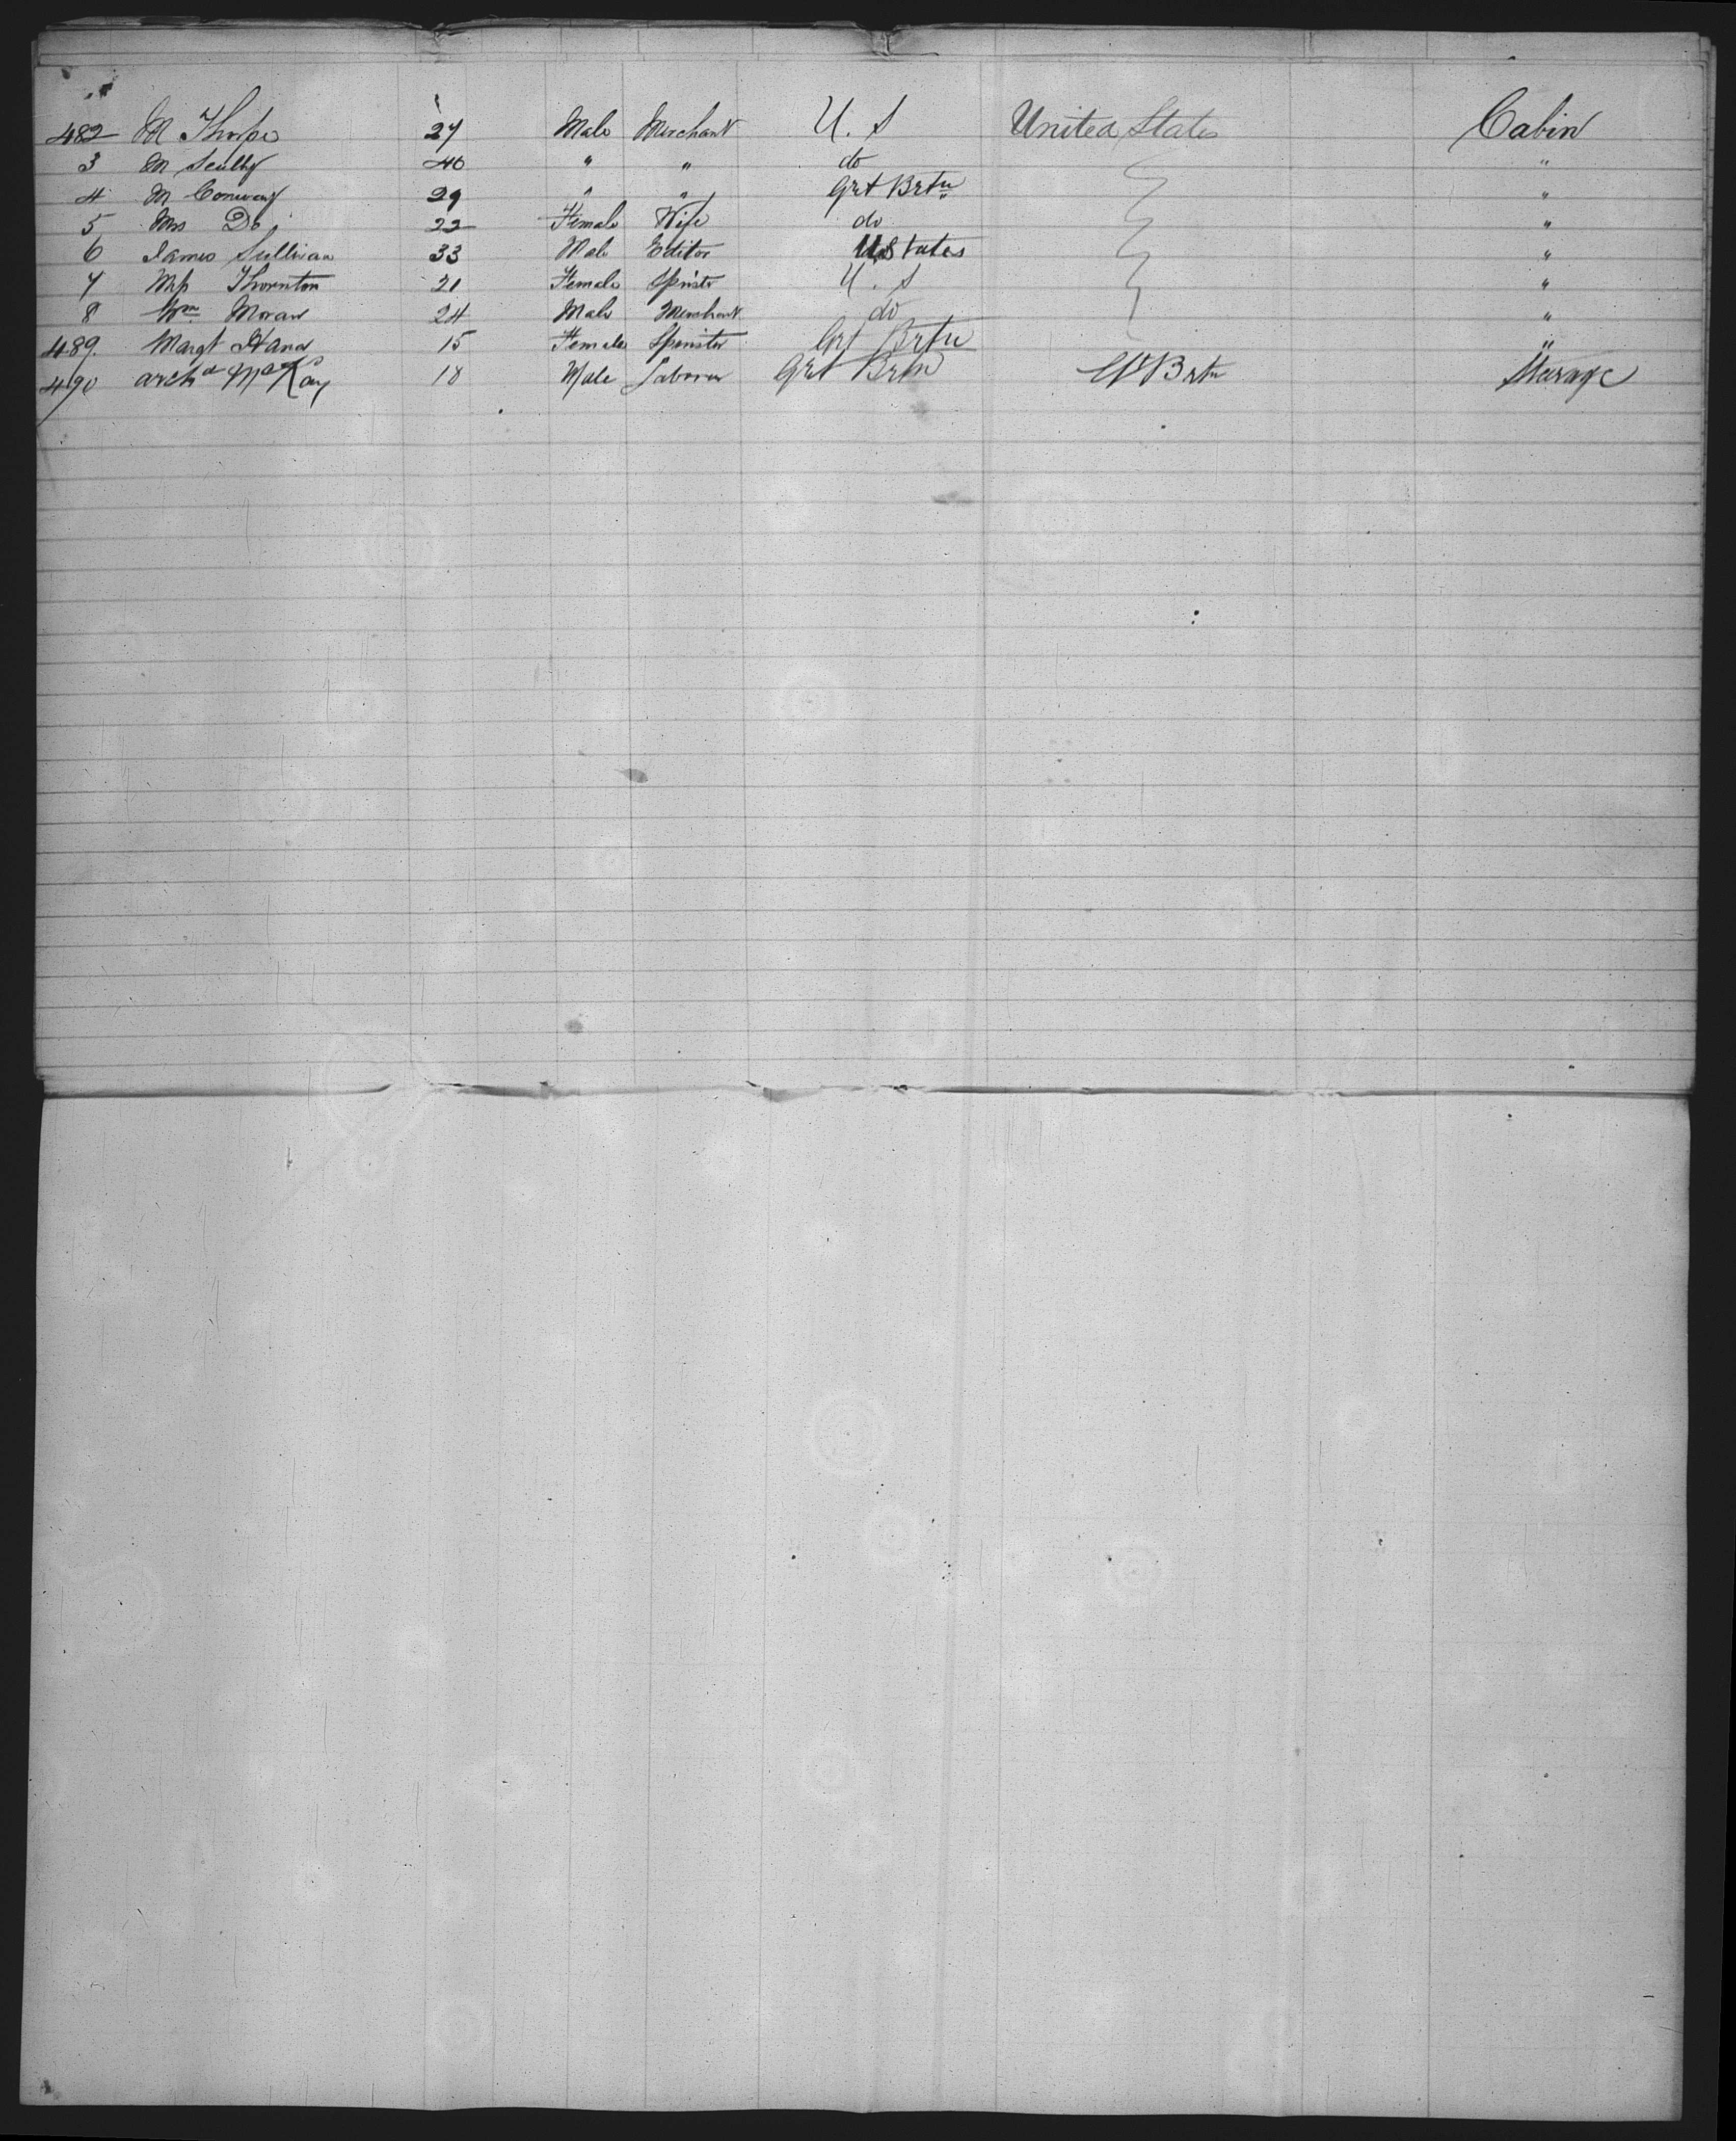 482 M Thorpe 27 Male Merchant U. S United States Cabin
3 M Scully 40 " " do "
4 M Conway 29 " " Grt Brtn "
5 Mrs Do 22 Female Wife do "
6 James Sullivan 33 Male Editor U States "
7 Miss Thornton 21 Female Spinstr U. S "
8 Wm Moran 24 Male Merchant do "
489. Margt Hand 15 Female Spinster Grt Brtn "
490 Archd McKay 18 Male Laborer Grt Brtn Gt Brtn Steerage